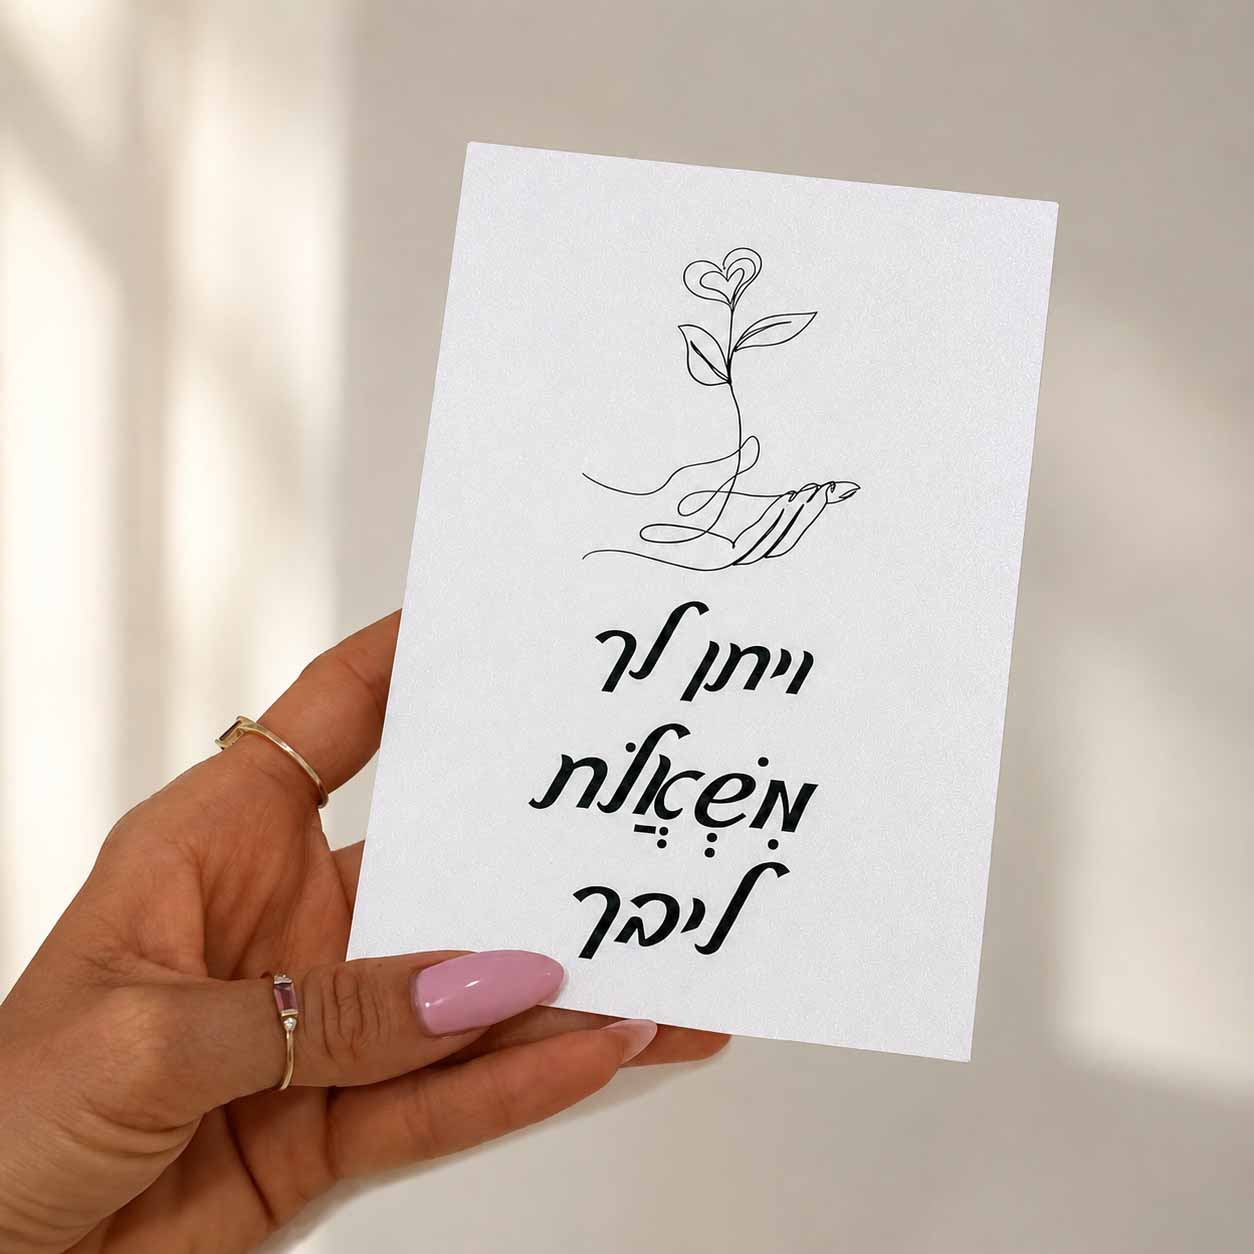 ויתן לך
מִשְׁאֲלֹת
ליבך